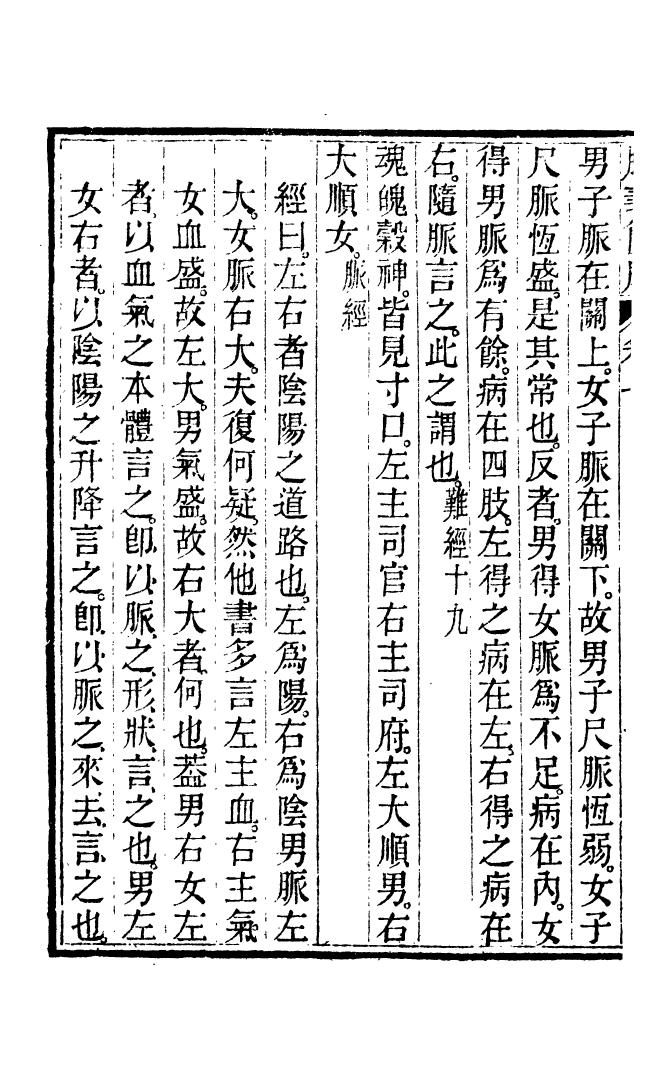 男子脈在關上。女子脈在關下。故男子尺脈恆弱。女子
尺脈恆盛。是其常也。反者。男得女脈爲不足。病在內。女
得男脈爲有餘。病在四肢。左得之病在左。右得之病在
右。隨脈言之。此之謂也。難經十九
魂魄穀神。皆見寸口。左主司官右主司府。左大順男。右
大順女。脈經
經曰。左右者陰陽之道路也。左爲陽。右爲陰男脈左
大。女脈右大。夫復何疑。然他書多言左主血。右主氣。
女血盛。故左大。男氣盛。故右大者。何也。葢男右女左
者。以血氣之本體言之。卽以脈之形狀言之也。男左
女右者。以陰陽之升降言之。卽以脈之來去言之也。